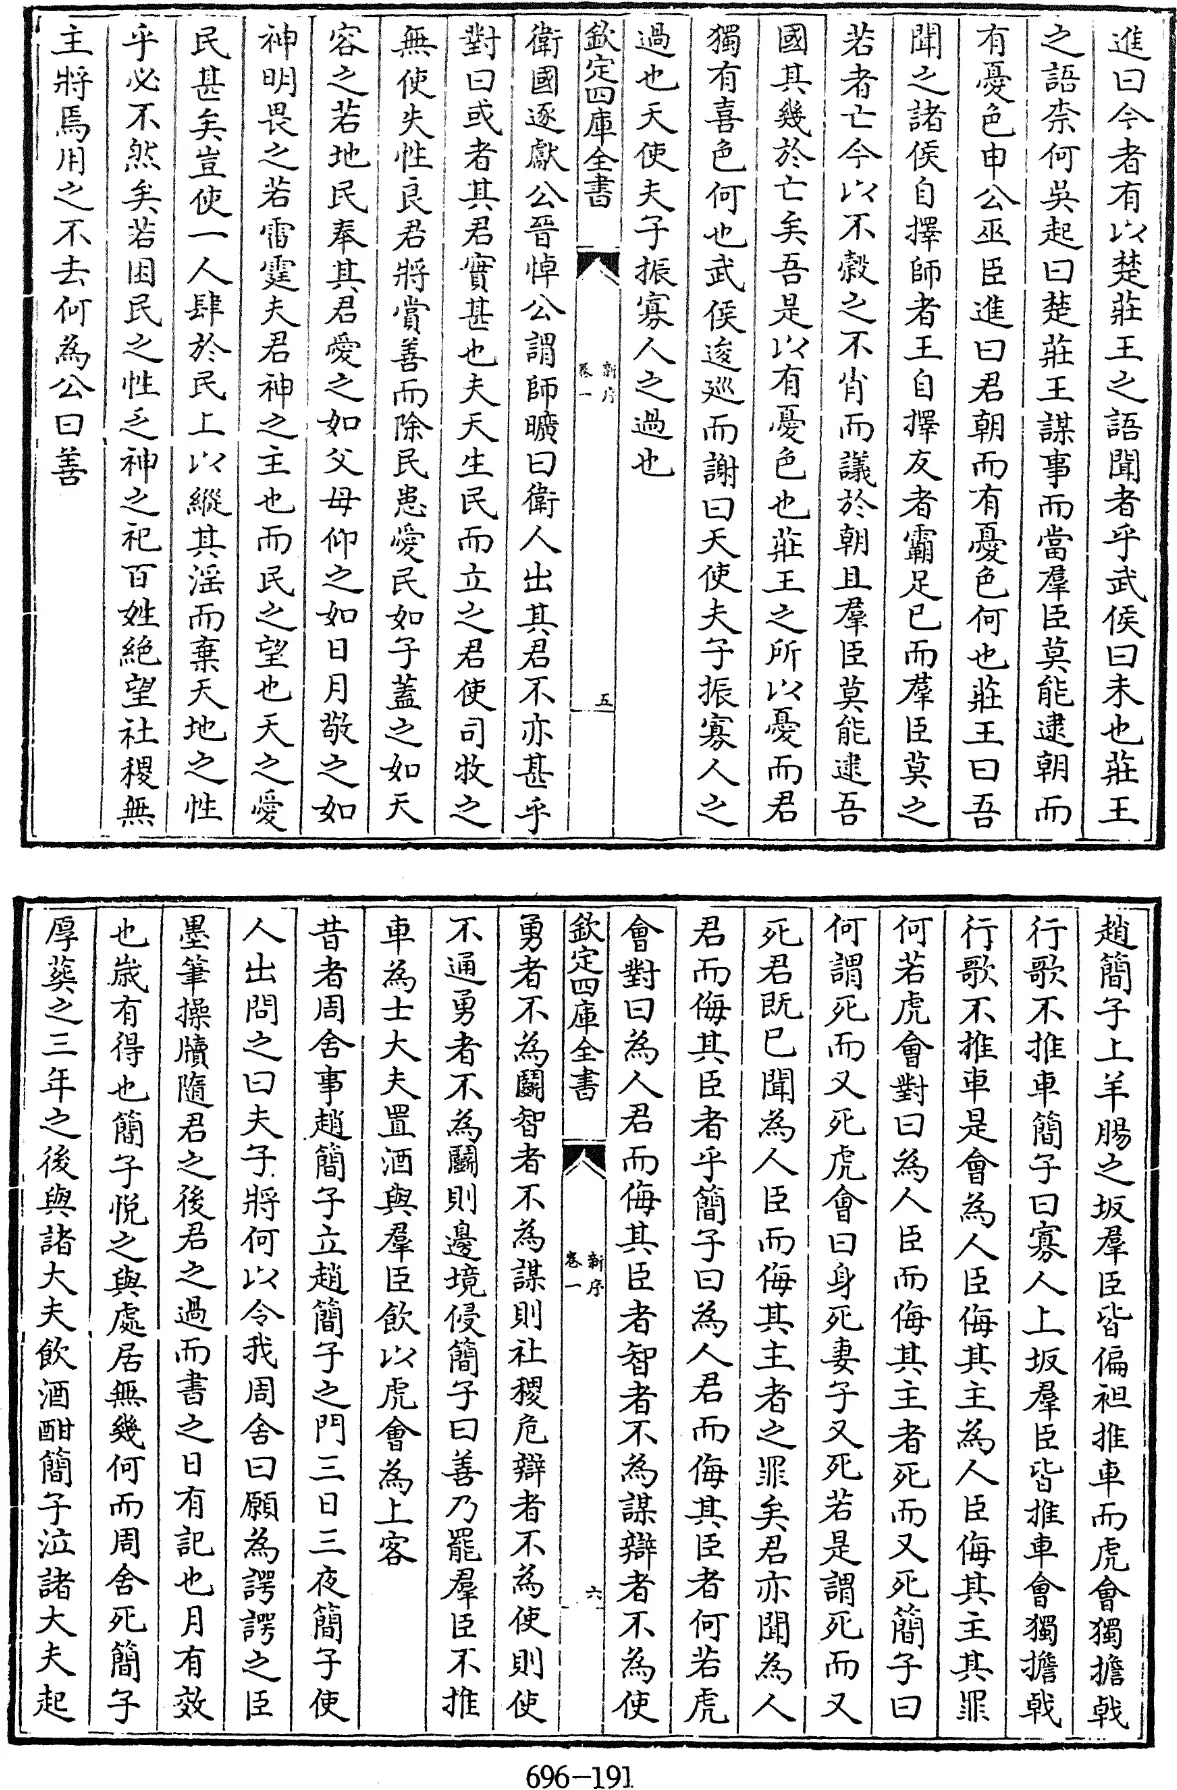 進曰今者有以楚莊王之語聞者乎武侯曰未也莊王
之語柰何吳起曰楚莊王謀事而當羣臣莫能逮朝而
有憂色申公巫臣進曰君朝而有憂色何也莊王曰吾
聞之諸侯自擇師者王自擇友者霸足已而羣臣莫之
若者亡今以不穀之不肖而議於朝且羣臣莫能逮吾
國其幾於亡矣吾是以有憂色也莊王之所以憂而君
獨有喜色何也武侯逡巡而謝曰天使夫子振寡人之
過也天使夫子振寡人之過也
欽定四庫全書
新序
卷一
五
衛國逐獻公晉悼公謂師曠曰衛人出其君不亦甚乎
對曰或者其君實甚也夫天生民而立之君使司牧之
無使失性良君將賞善而除民患愛民如子蓋之如天
容之若地民奉其君愛之如父母仰之如日月敬之如
神明畏之若雷霆夫君神之主也而民之望也天之愛
民甚矣豈使一人肆於民上以縱其淫而棄天地之性
乎必不然矣若困民之性乏神之祀百姓絶望社稷無
主將焉用之不去何為公曰善
趙簡子上羊腸之坂羣臣皆偏袒推車而虎會獨擔戟
行歌不推車簡子曰寡人上坂羣臣皆推車會獨擔戟
行歌不推車是會為人臣侮其主為人臣侮其主其罪
何若虎會對曰為人臣而侮其主者死而又死簡子曰
何謂死而又死虎會曰身死妻子又死若是謂死而又
死君既已聞為人臣而侮其主者之罪矣君亦聞為人
君而侮其臣者乎簡子曰為人君而侮其臣者何若虎
會對曰為人君而侮其臣者智者不為謀辯者不為使
欽定四庫全書
新序
卷一
六
勇者不為鬭智者不為謀則社稷危辯者不為使則使
不通勇者不為鬭則邊境侵簡子曰善乃罷羣臣不推
車為士大夫置酒與羣臣飲以虎會為上客
昔者周舍事趙簡子立趙簡子之門三日三夜簡子使
人出問之曰夫子將何以令我周舍曰願為諤諤之臣
墨筆操牘隨君之後君之過而書之日有記也月有效
也歲有得也簡子悦之與處居無幾何而周舍死簡子
厚葬之三年之後與諸大夫飲酒酣簡子泣諸大夫起
696-191